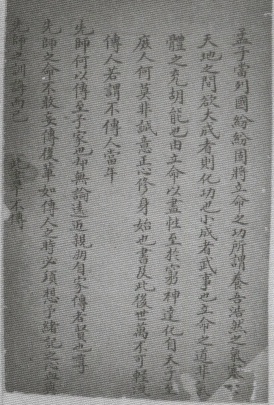 孟子當列國紛紛固將立命之功所謂養吾浩然之氣塞
天地之間欲大成者則化功也小成者武事也立命之道非
體之充胡能也由立命以盡性至於窮神達化自天子至
庶人何莫非誠意正心修身始也書及此後世萬不可輕
傳人若謂不傳人當年
先師何以傳至予家也却無論遠近親朋自家傳者賢也尊
先師之命不敢妄傳後輩如傳人之時必須想予緒記之心血與
先師之訓誨而已 此章不傳